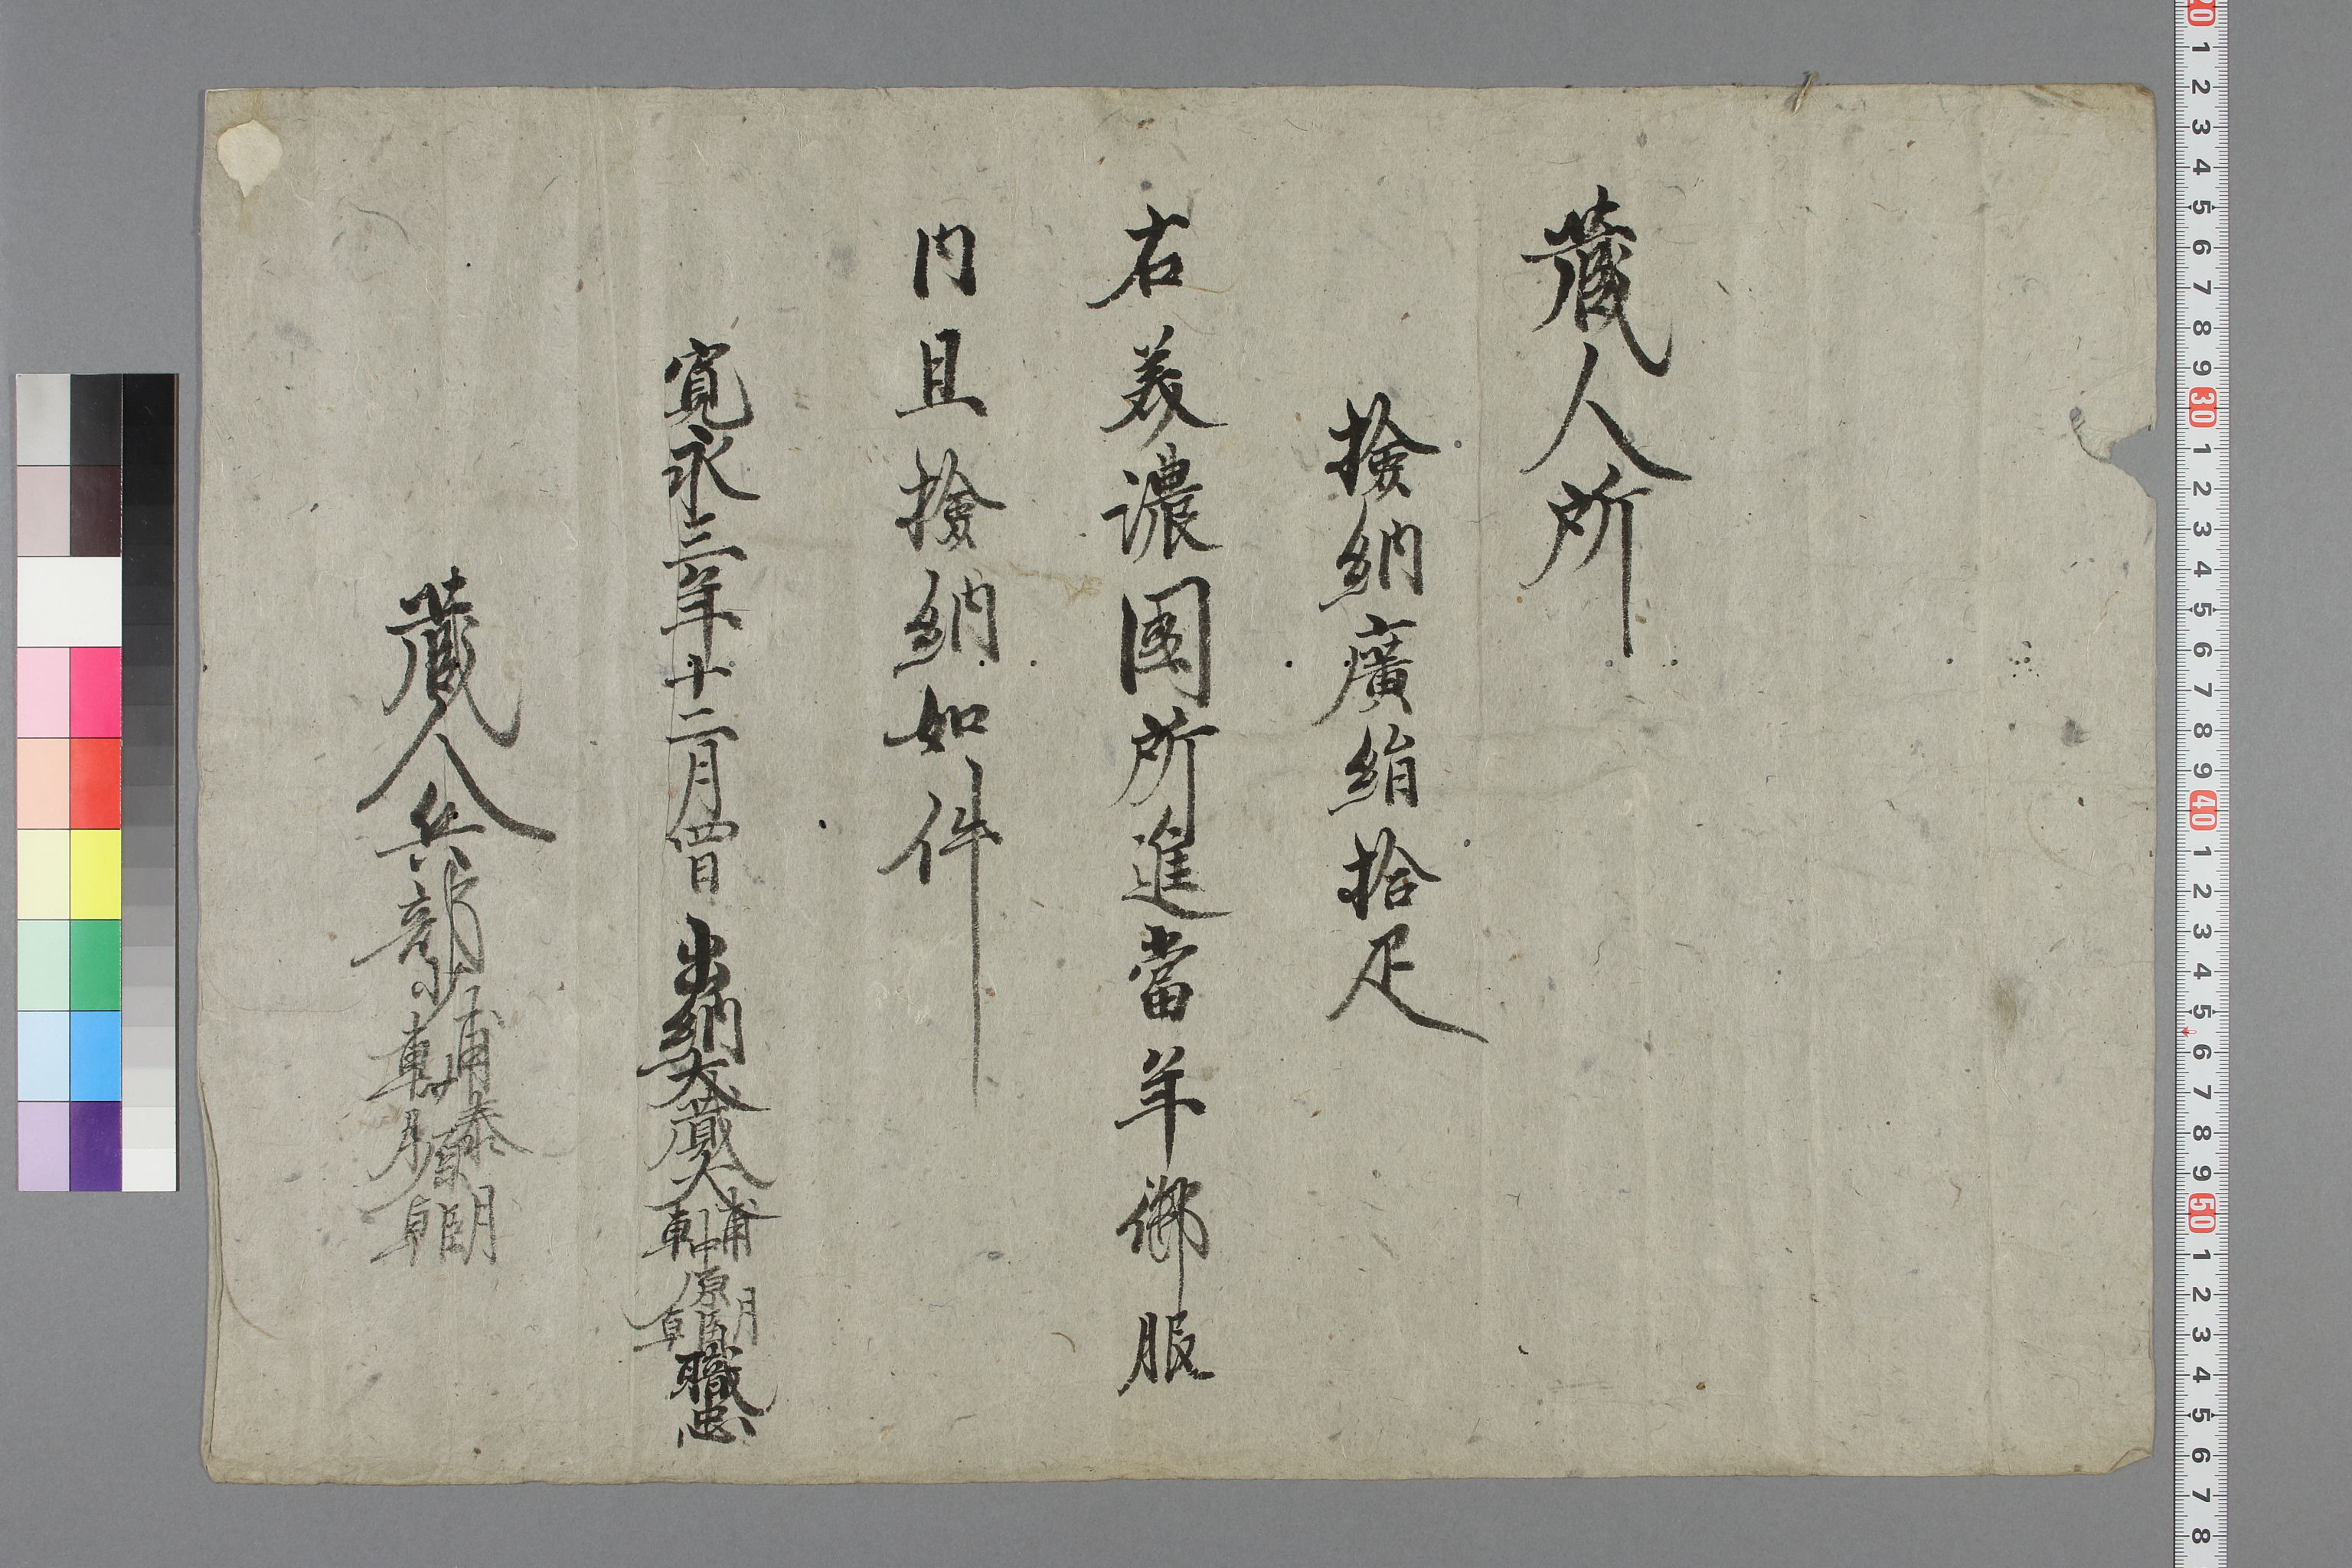 藏人所
撿納廣絹拾疋
右美濃國所進當年御服
内且撿納如件
寛永三年十二月四日 出納大藏大輔中原朝臣職忠
藏人兵部少輔藤原朝臣